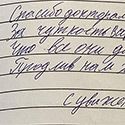 Спасибо доктора
За чуткость
Что все они д
Продлив нам
С уваже